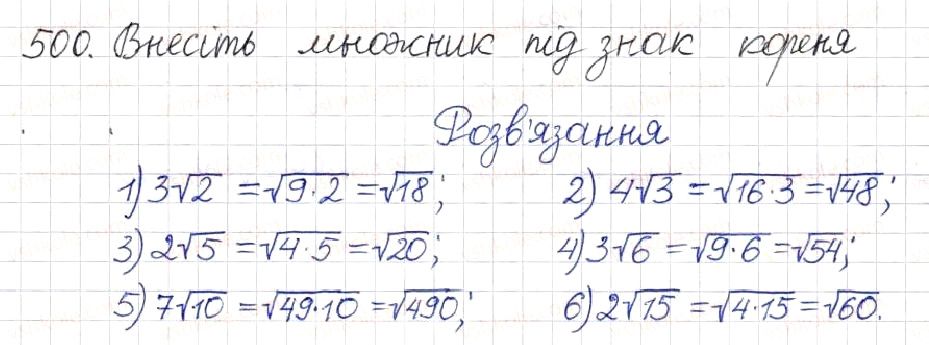 500. Внесіть множник під знак кореня
Розв'язання
1) 3√2 = √9·2 = √18; 2) 4√3 = √16·3 = √48;
3) 2√5 = √4·5 = √20; 4) 3√6 = √9·6 = √54;
5) 7√10 = √49·10 = √490; 6) 2√15 = √4·15 = √60.